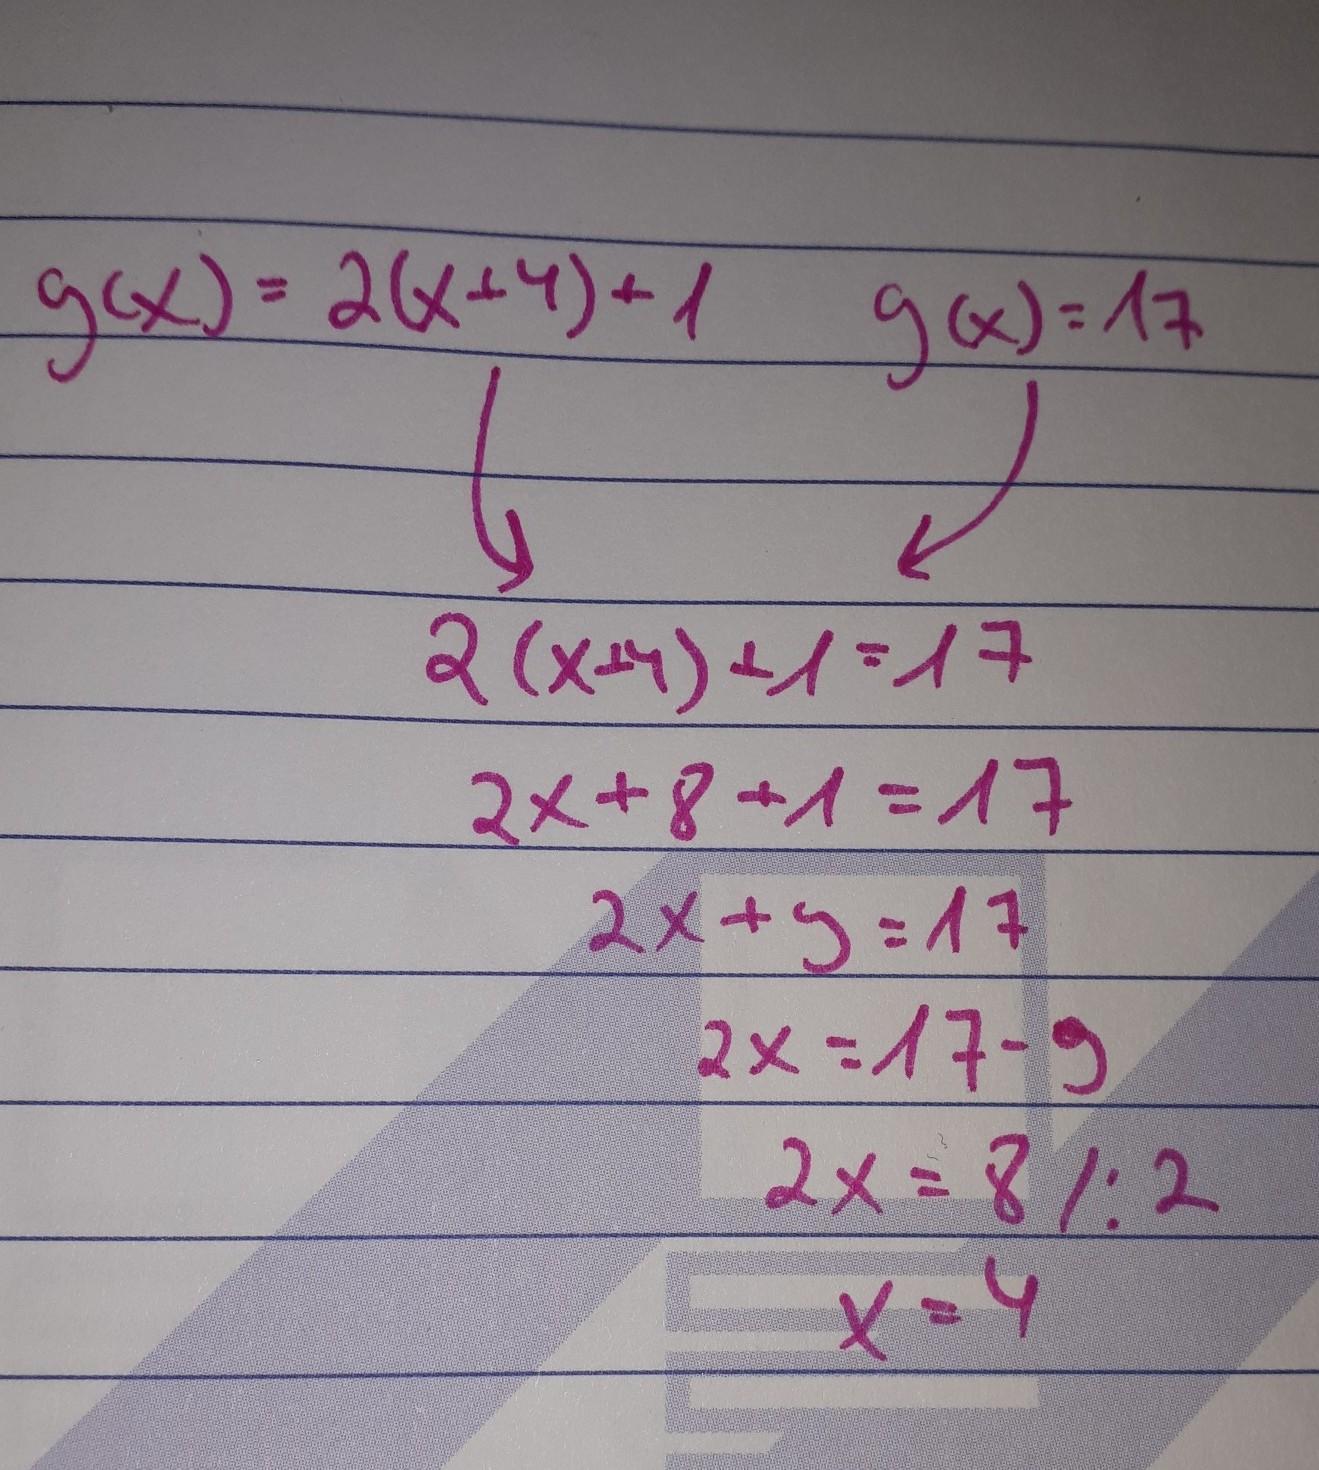 g(x) = 2(x+4)+1 g(x)=17
2(x+4)+1=17
2x+8+1=17
2x+9=17
2x=17-9
2x=8 /:2
x=4